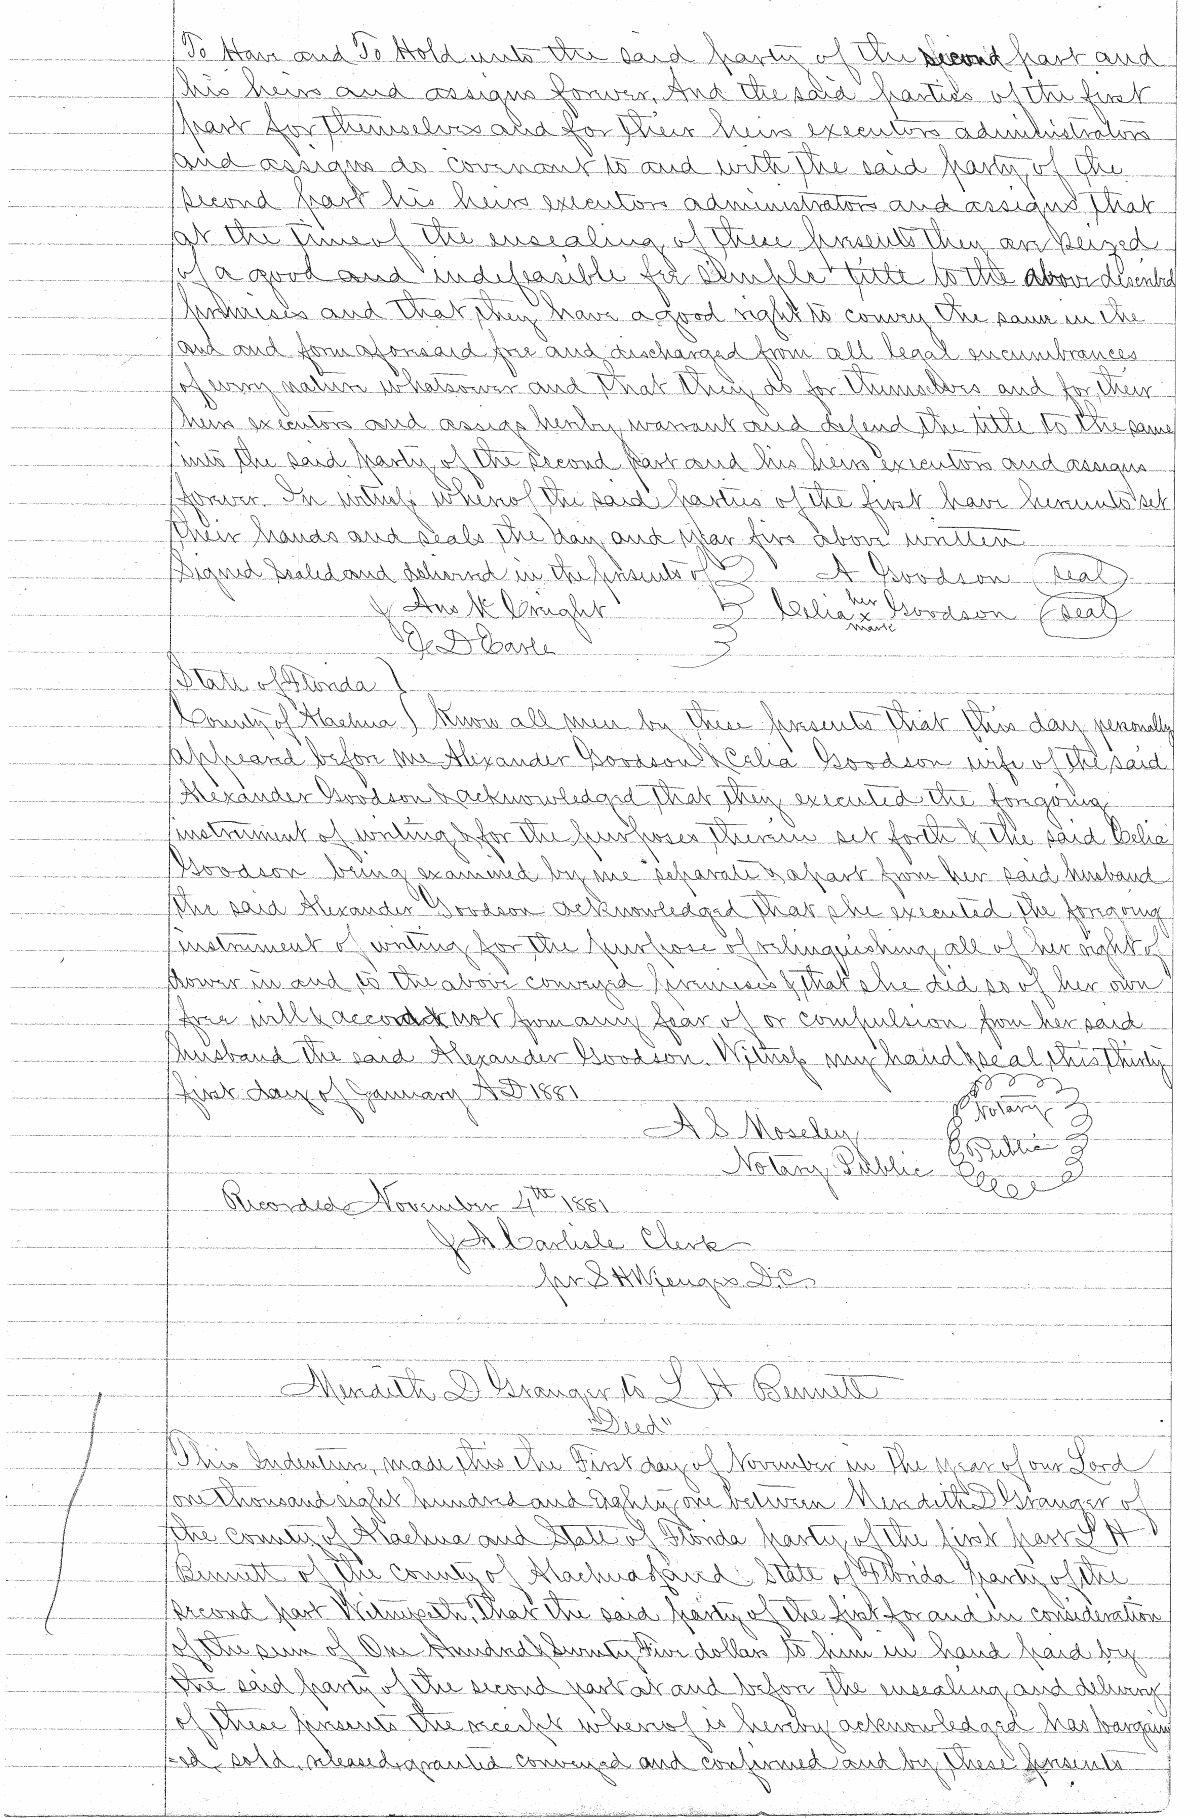 To Have and To Hold unto the said party of the second part and
his heirs and assigns forever. And the said parties of the first
part for themselves and for their heirs executors administrators
and assigns do covenant to and with the said party of the
second part his heirs executors administrators and assigns that
at the time of the ensealing of these presents they are seized
of a good and indefeasible fee simple title to the above described
premises and that they have a good right to convey the same in the
and and form aforesaid free and discharged from all legal encumbrances
of every nature whatsoever and that they do for themselves and for their
heirs executors and assigs hereby warrant and defend the title to the same
unto the said party of the second part and his heirs executors and assigns
forever. In witness whereof the said parties of the first have hereunto set
their hands and seals the day and year firs above written
Signed Sealed and delivered in the presents of A Goodson (seal)
Jno K Wright Celia her x mark Goodson (seal)
E D Earle
State of Florida }
County of Alachua } Know all men by these presents that this day personally
appeared before me Alexander Goodson & Celia Goodson wife of the said
Alexander Goodson & acknowledged that they executed the foregoing
instrument of writing & for the purposes therein set forth & the said Celia
Goodson being examined by me separate & apart from her said husband
the said Alexander Goodson acknowledged that she executed the foregoing
instrument of writing for the purpose of relinquishing all of her right of
dower in and to the above conveyed premises & that she did so of her own
free will & accord & not from any fear of or compulsion from her said
husband the said Alexander Goodson. Witness my hand & seal this Thirty
first day of January AD 1881
A S Moseley Notary
Notary Public Public
Recorded November 4th 1881
J A Carlisle Clerk
pr S H Wienges D.C.
Meredith D Granger to L H Bennett
"Deed"
This Indenture, made this the First day of November in the year of our Lord
one thousand eight hundred and Eighty one between Meredith D Granger of
the County of Alachua and State of Florida party of the first part L H
Bennett of the County of Alachua and State of Florida party of the
second part Witnesseth, That the said party of the first for and in consideration
of the sum of One Hundred & Twenty Five dollars to him in hand paid by
the said party of the second part at and before the ensealing and delivery
of these presents the receipt whereof is hereby acknowledged has bargain
=ed, sold, released, granted conveyed and confirmed and by these presents